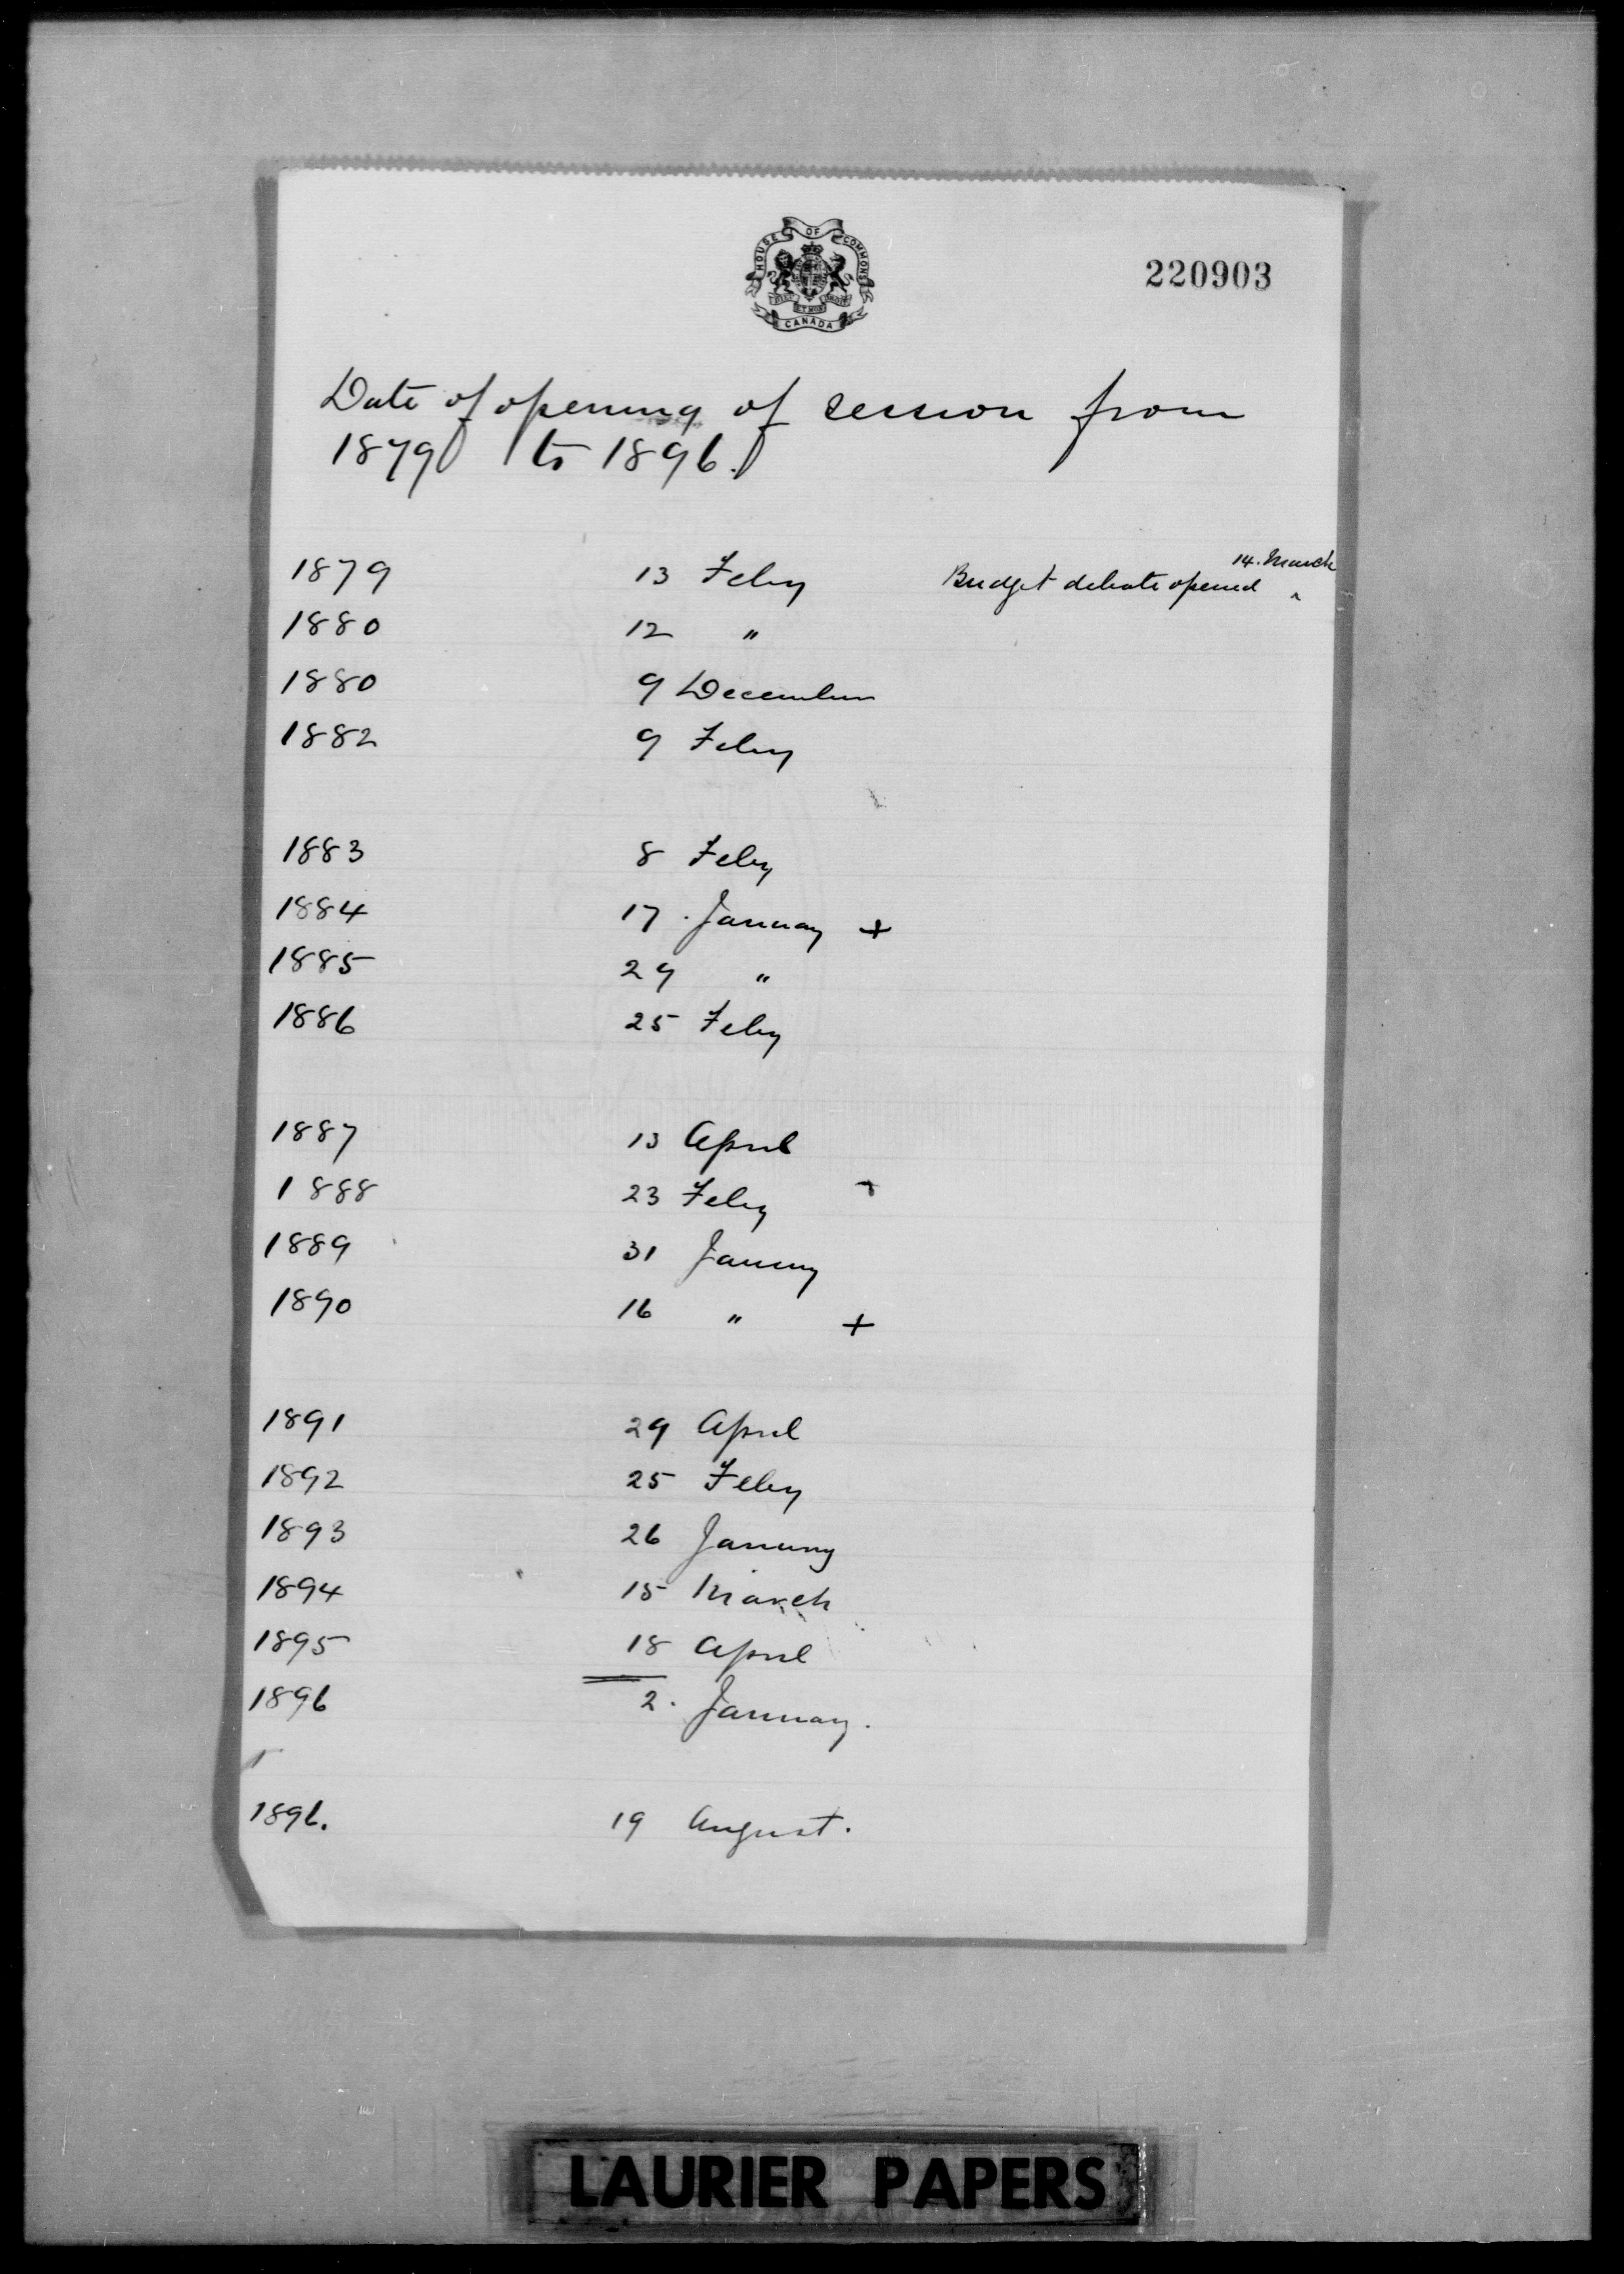 HOUSE OF COMMONS
DIEU ET MON DROIT
CANADA
220903
Date of opening of session from
1879 to 1896.
1879 13 Feby Budget debate opened ^ 14. March
1880 12 "
1880 9 December
1882 9 Feby
1883 8 Feby
1884 17. January +
1885 29 "
1886 25 Feby
1887 13 April
1888 23 Feby
1889 31 January
1890 16 " +
1891 29 April
1892 25 Feby
1893 26 January
1894 15 March
1895 18 April
1896 2. January.
1896. 19 August.
LAURIER PAPERS